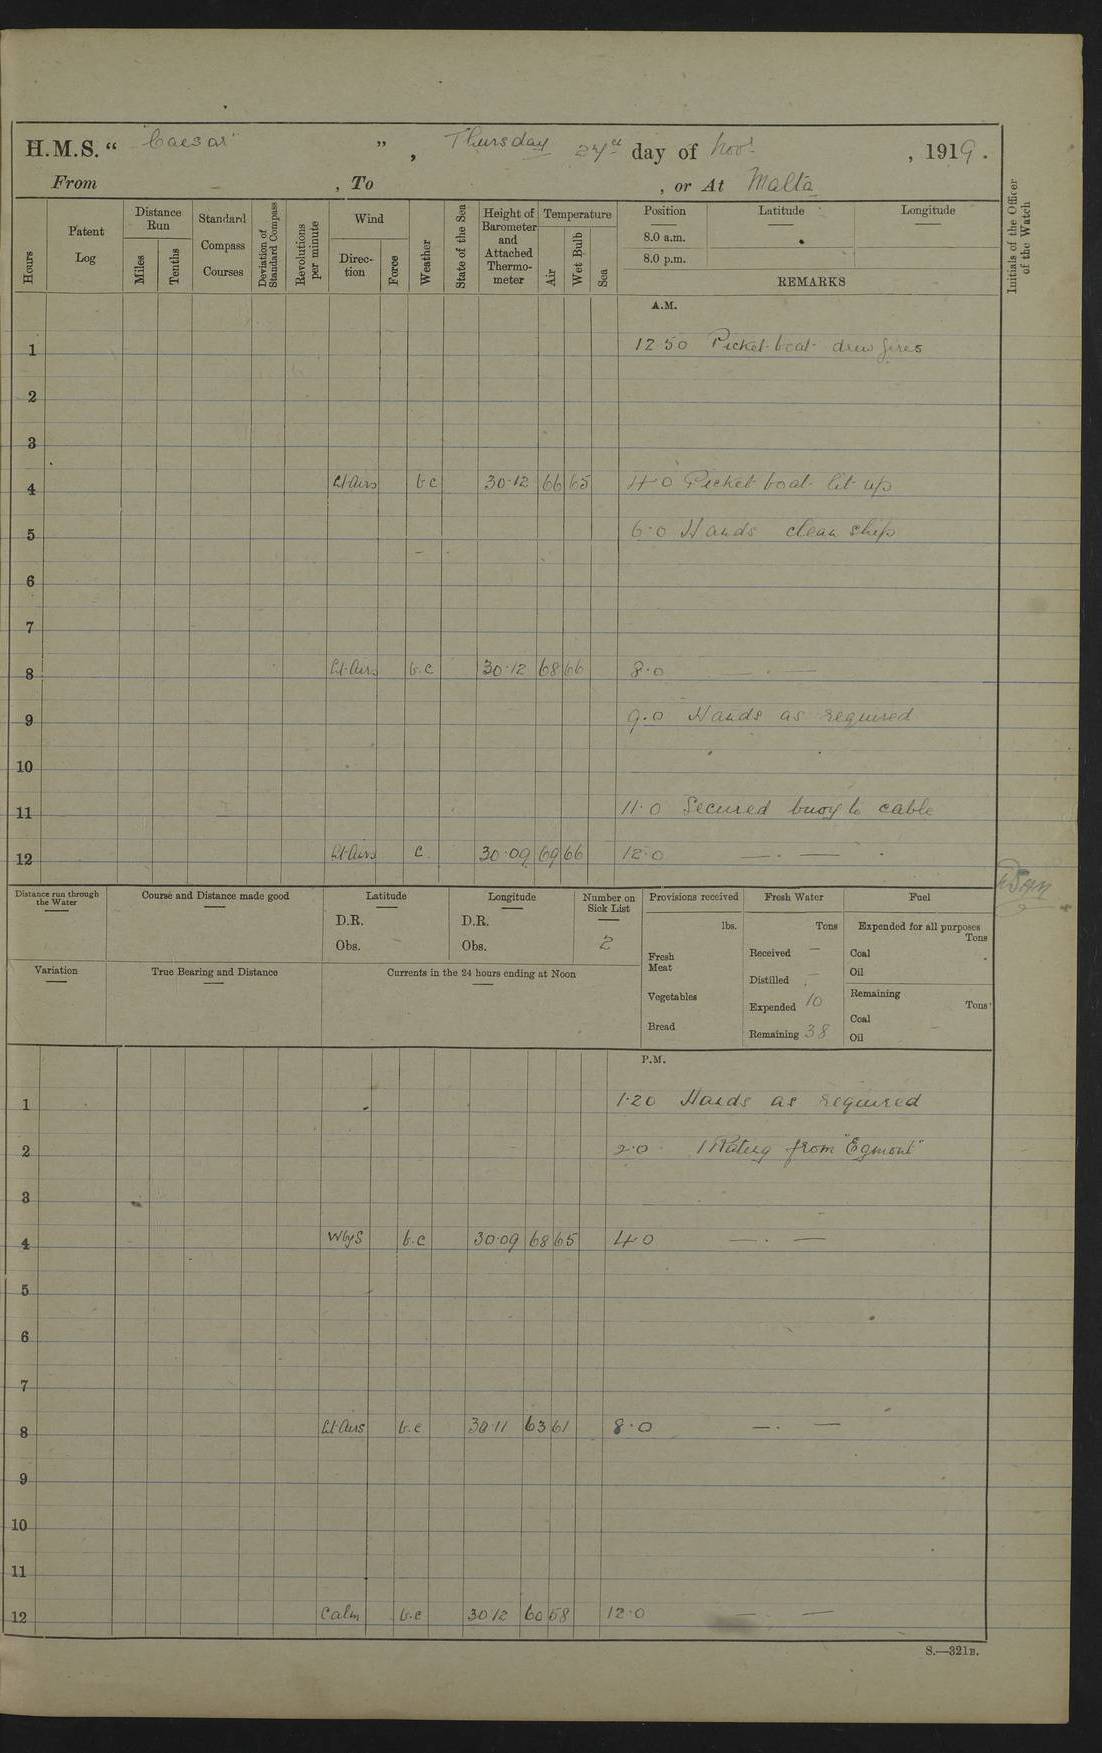 H.M.S. “ Caesar ” , Thursday 27th day of Novr , 1919 .
From - , To , or At Malta
Hours
Patent Log
Distance Run
Miles
Tenths
Standard Compass Courses
Deviation of Standard Compass
Revolutions per minute
Wind
Direction
Force
Weather
State of the Sea
Height of Barometer and Attached Thermometer
Temperature
Air
Wet Bulb
Sea
Position
Latitude
Longitude
8.0 a.m.
8.0 p.m.
REMARKS
Initials of the Officer of the Watch
A.M.
1 12·50 Picket boat drew fires
2
3
4 Lt Airs b c 30·12 66 65 4·0 Picket boat lit up
5 6·0 Hands clean ship
6
7
8 Lt Airs b.c 30·12 68 66 8·0 — · —
9 9.0 Hands as required
10
11 11·0 Secured buoy to cable
12 Lt Airs c 30·09 69 66 12·0 — · —
Distance run through the Water
Course and Distance made good
Latitude
D.R.
Obs.
Longitude
D.R.
Obs.
Number on Sick List
2
Provisions received
lbs.
Fresh Meat
Vegetables
Bread
Fresh Water
Tons
Received —
Distilled —
Expended 10
Remaining 38
Fuel
Expended for all purposes
Tons
Coal
Oil
Remaining
Tons
Coal
Oil
Variation
True Bearing and Distance
Currents in the 24 hours ending at Noon
P.M.
1 1·20 Hands as required
2 2·0 1 Rating from "Egmont"
3
4 WbyS b.c 30·09 68 65 4·0 — · —
5
6
7
8 Lt Airs b.c 30·11 63 61 8·0 — · —
9
10
11
12 Calm b.c 30·12 60 58 12·0 — —
S.—321B.